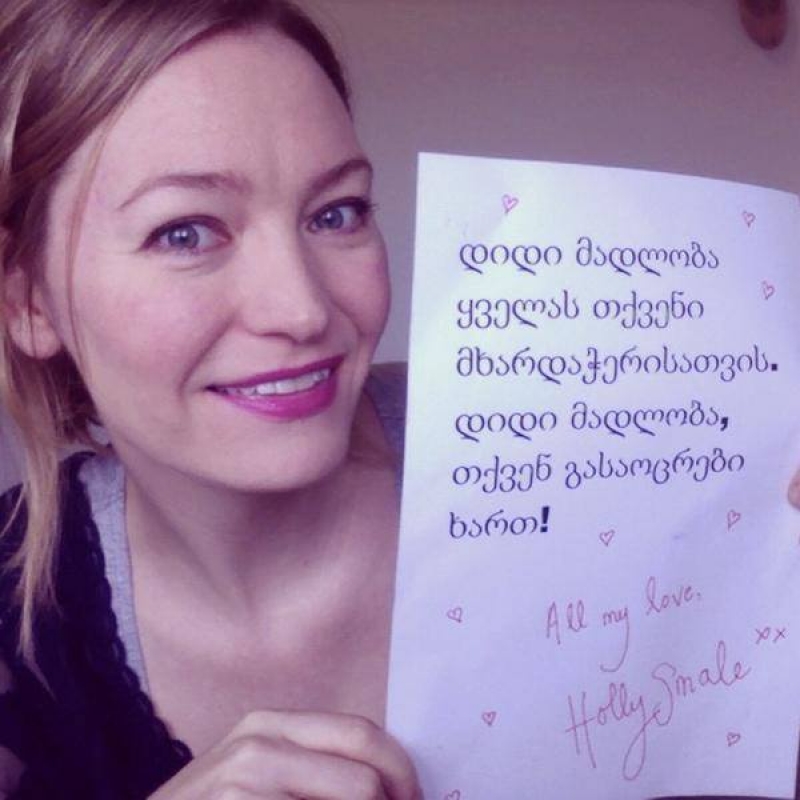 დიდი მადლობა
ყველას თქვენი
მხარდაჭერისათვის.
დიდი მადლობა,
თქვენ გასაოცრები
ხართ!
All my love.
Holly Smale xx